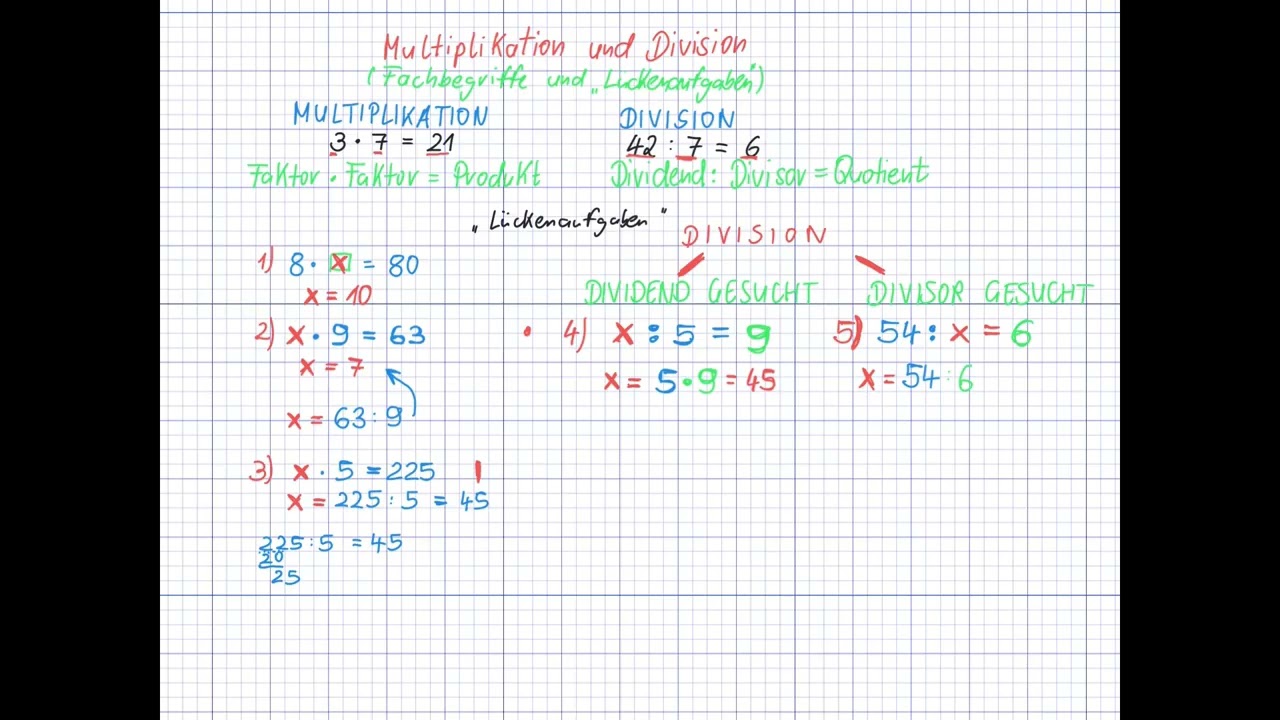 Multiplikation und Division
(Fachbegriffe und „Lückenaufgaben")
MULTIPLIKATION
3 · 7 = 21
Faktor · Faktor = Produkt
DIVISION
42 : 7 = 6
Dividend : Divisor = Quotient
„Lückenaufgaben"
1) 8 · x = 80
x = 10
2) x · 9 = 63
x = 7
x = 63 : 9
3) x · 5 = 225
x = 225 : 5 = 45
225 : 5 = 45
20
25
DIVISION
DIVIDEND GESUCHT
4) x : 5 = 9
x = 5 · 9 = 45
DIVISOR GESUCHT
5) 54 : x = 6
x = 54 : 6